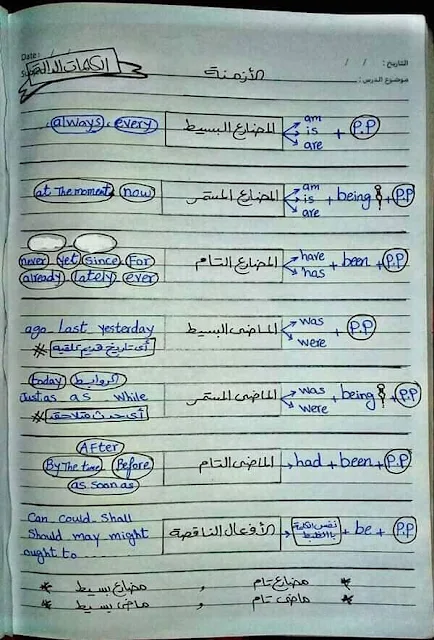 التاريخ : / / Date : / /
موضوع الدرس :
الأزمنة الكلمات الدالة
always, every المضارع البسيط am is are + P.P
at The moment, now المضارع المستمر am is are + being + P.P
never yet since for المضارع التام have has + been + P.P
already lately ever
ago Last yesterday الماضى البسيط was were + P.P
* أى تاريخ قديم تلاقيه
today الروابط الماضى المستمر was were + being + P.P
Just as as while
* أى حدث
AFter
By The time Before الماضى التام had + been + P.P
as soon as
Can could shall الأفعال الناقصة نفس الكلمة بالظبط + be + P.P
Should may might
ought to
* مضارع تام , مضارع بسيط *
* ماضى تام , ماضى بسيط *